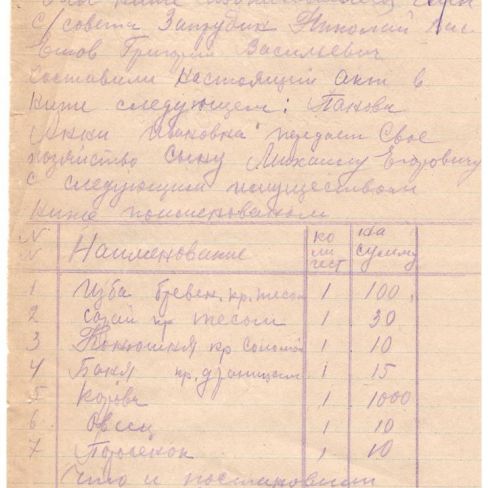 с/совета Запрудин Николай
Григорий Васильевич
Составили настоящий акт в
ниже следующем: Панова
Анна передает свое
хозяйство сыну Михаилу Егоровичу
с следующим имуществом
ниже поименованом
N N Наименование ко личест на сумму
1 Изба бревен. кр. тесом 1 100
2 сарай кр тесом 1 30
3 Конюшня кр соломой 1 10
4 Баня кр. драницам 1 15
5 корова 1 1000
6 Овец 1 10
7 Поросенок 1 10
Что и постановили